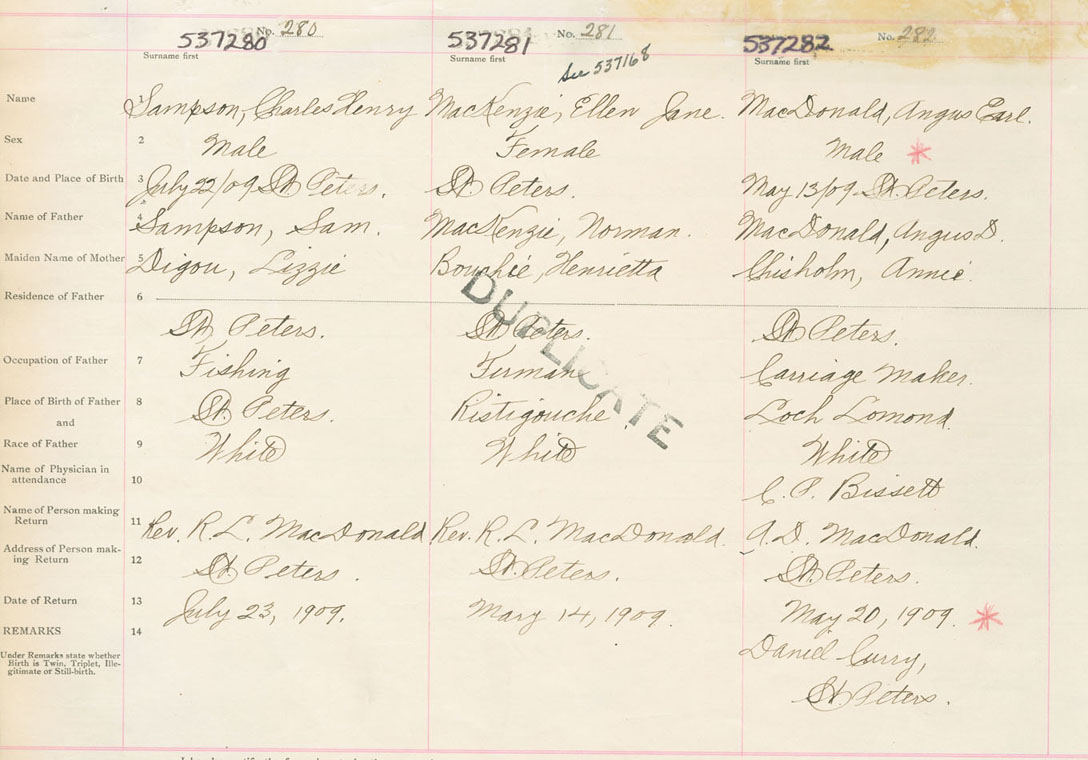 No. 280 No. 281 No. 282
537280 537281 537282
Surname first Surname first Surname first
See 537168
Name 1 Sampson, Charles Henry MacKenzie, Ellen Jane. MacDonald, Angus Earl.
Sex 2 Male Female Male *
Date and Place of Birth 3 July 22/09 St. Peters. St. Peters. May 13/09 St. Peters.
Name of Father 4 Sampson, Sam. MacKenzie, Norman. MacDonald, Angus D.
Maiden Name of Mother 5 Digou, Lizzie Bouchie, Henrietta Chisholm, Annie.
Residence of Father 6
St. Peters. St. Peters. St. Peters.
DUPLICATE
Occupation of Father 7 Fishing Firman Carriage Maker.
Place of Birth of Father 8 St. Peters. Ristigouche Loch Lomond.
and
Race of Father 9 White White White
Name of Physician in
attendance 10 C. P. Bissett
Name of Person making
Return 11 Rev. R. L. MacDonald Rev. R. L. MacDonald. A. D. MacDonald.
Address of Person mak-
ing Return 12 St. Peters. St. Peters. St. Peters.
Date of Return 13 July 23, 1909. Mary 14, 1909. May 20, 1909. *
REMARKS 14
Under Remarks state whether
Birth is Twin, Triplet, Ille-
gitimate or Still-birth.
Daniel Curry,
St. Peters.